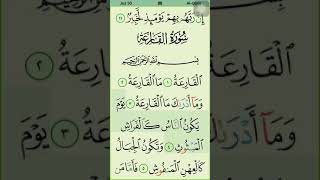 Juz 30
إِنَّ رَبَّهُم بِهِمْ يَوْمَئِذٍ لَّخَبِيرٌ ١١
سُورَةُ القَارِعَةِ
بِسْمِ اللَّهِ الرَّحْمَٰنِ الرَّحِيمِ
الْقَارِعَةُ ١ مَا الْقَارِعَةُ ٢
وَمَآ أَدْرَىٰكَ مَا الْقَارِعَةُ ٣ يَوْمَ
يَكُونُ النَّاسُ كَالْفَرَاشِ
الْمَبْثُوثِ ٤ وَتَكُونُ الْجِبَالُ
كَالْعِهْنِ الْمَنفُوشِ ٥ فَأَمَّا مَن